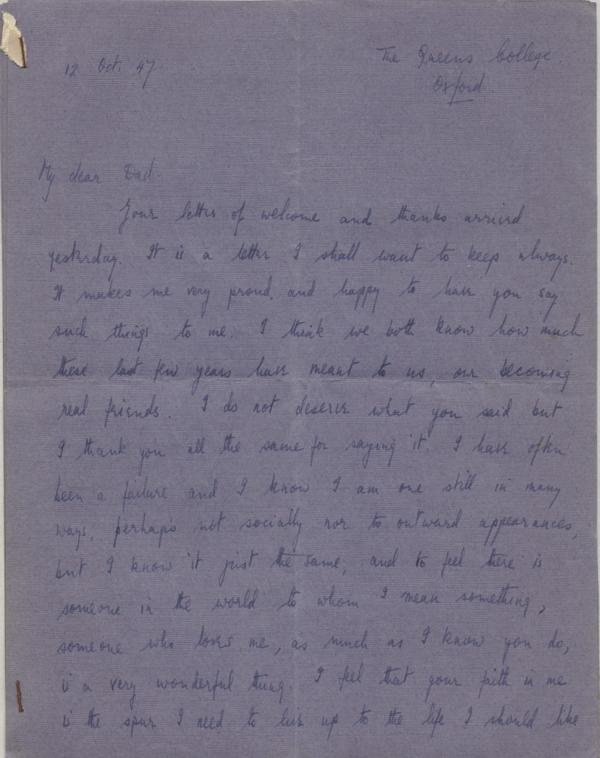 12 Oct. 47
The Queens College.
Oxford.
My dear Dad.
Your letter of welcome and thanks arrived
yesterday. It is a letter I shall want to keep always.
It makes me very proud, and happy to have you say
such things to me. I think we both know how much
these last few years have meant to us, our becoming
real friends. I do not deserve what you said but
I thank you all the same for saying it. I have often
been a failure and I know I am one still in many
ways, perhaps not socially nor to outward appearances,
but I know it just the same, and to feel there is
someone in the world to whom I mean something,
someone who loves me, as much as I know you do,
is a very wonderful thing. I feel that your faith in me
is the spur I need to live up to the life I should like